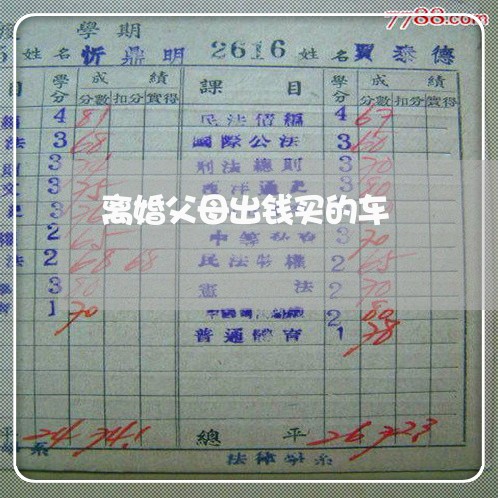 7788.com
學期
姓名 忻鼎明 2616 姓名 賈泰德
目 學分 成績 課目 學分 成績
分數 扣分 實得 分數 扣分 實得
4 81 民法債編 4 67
法 3 68 國際公法 3 60
3 刑法總則 3 70
3 75 西洋通史 3 80
离婚父母出钱买的车
2 65 中等私有 3 70
法 2 68 68 民法物權 2 65
3 80 憲法 2 70
1 70 2 80
普通體育 1 78
平 24 74.1 總平 26 72.3
系 法律學系